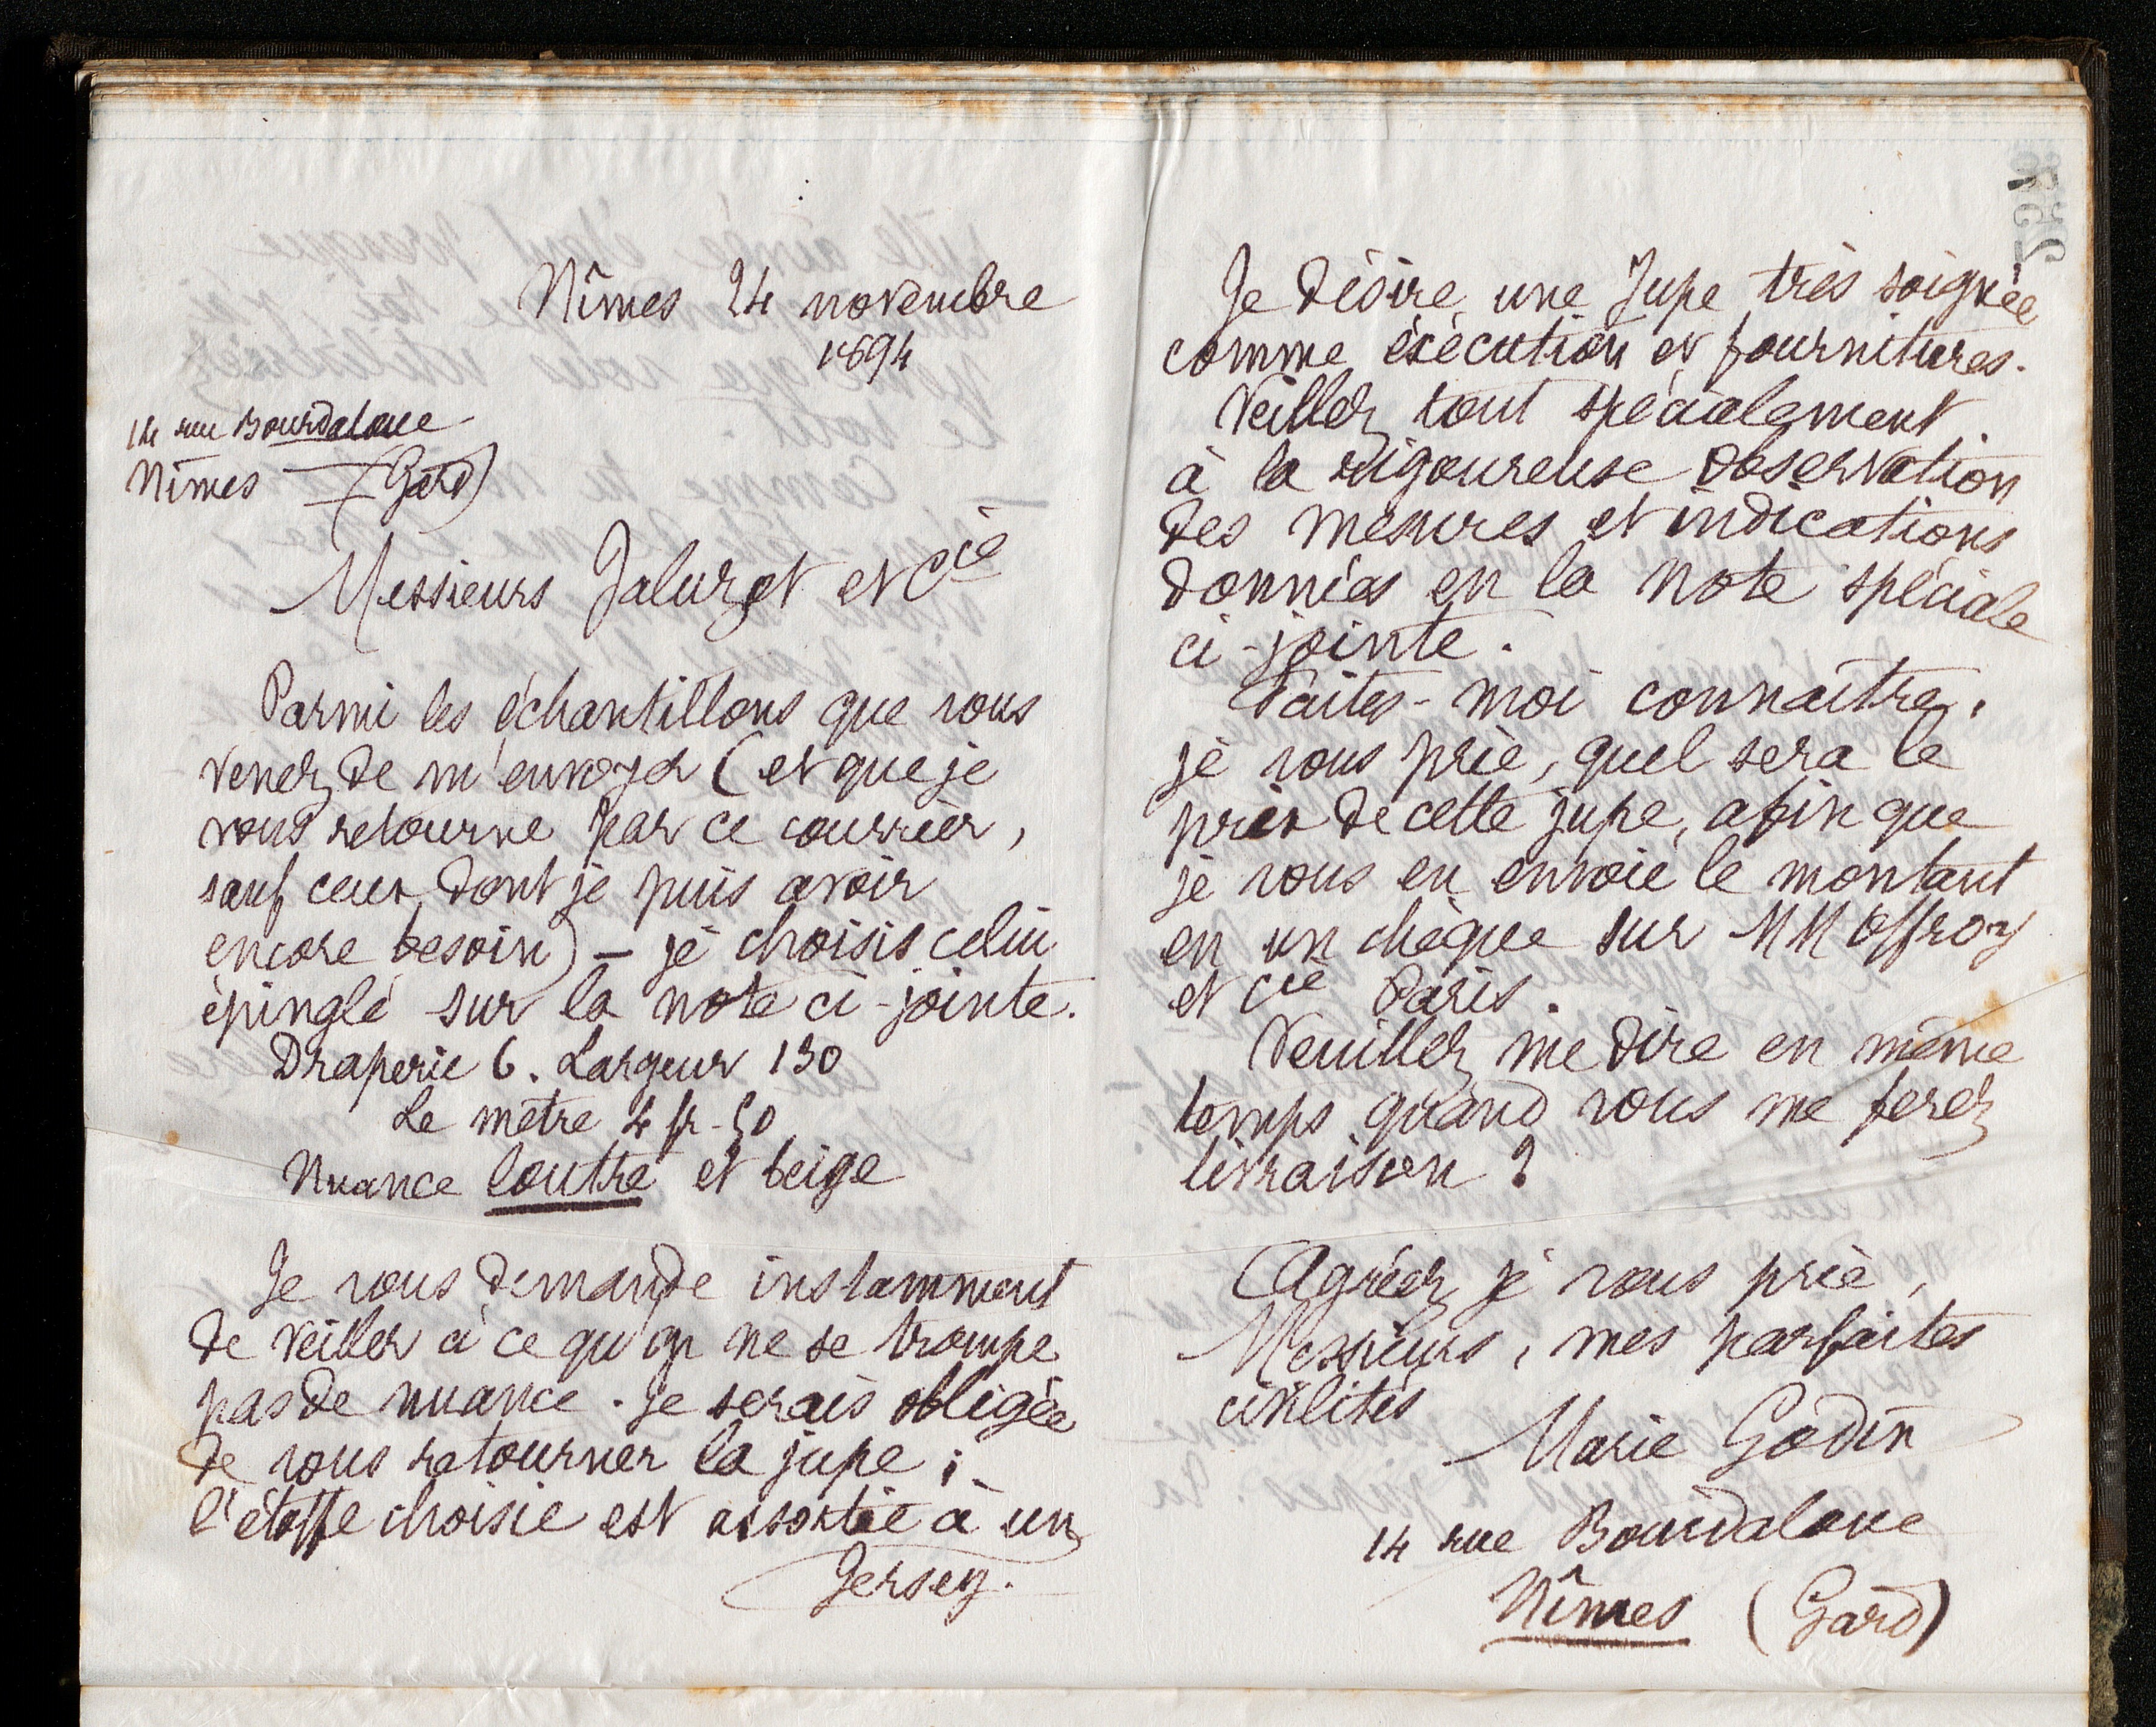 Nîmes 24 novembre
1894
14 rue Bourdaloue
Nîmes — (Gard)
Messieurs Jaluzot et Cie
Parmi les échantillons que vous
venez de m'envoyer (et que je
vous retourne par ce courrier,
sauf ceux dont je puis avoir
encore besoin) – je choisis celui
épinglé sur la note ci-jointe.
Draperie 6. Largeur 130
Le mètre 4 fr-50
Nuance loutre et beige
Je vous demande instamment
de veiller à ce qu'on ne se trompe
pas de nuance. Je serais obligée
de vous retourner la jupe ;
l'étoffe choisie est assortie à un
Jersey.
Je désire une Jupe très soignée
comme éxécution et fournitures.
Veillez tout spécialement
à la rigoureuse observation
des mesures et indications
données en la note spéciale
ci-jointe.
Faites-moi connaître,
je vous prie, quel sera le
prix de cette jupe, afin que
je vous en envoie le montant
en un chèque sur MM Offroy
et Cie Paris.
Veuillez me dire en même
temps quand vous me ferez
livraison ?
Agréez je vous prie,
Messieurs, mes parfaites
civilités
Marie Godin
14 rue Bourdaloue
Nîmes (Gard)